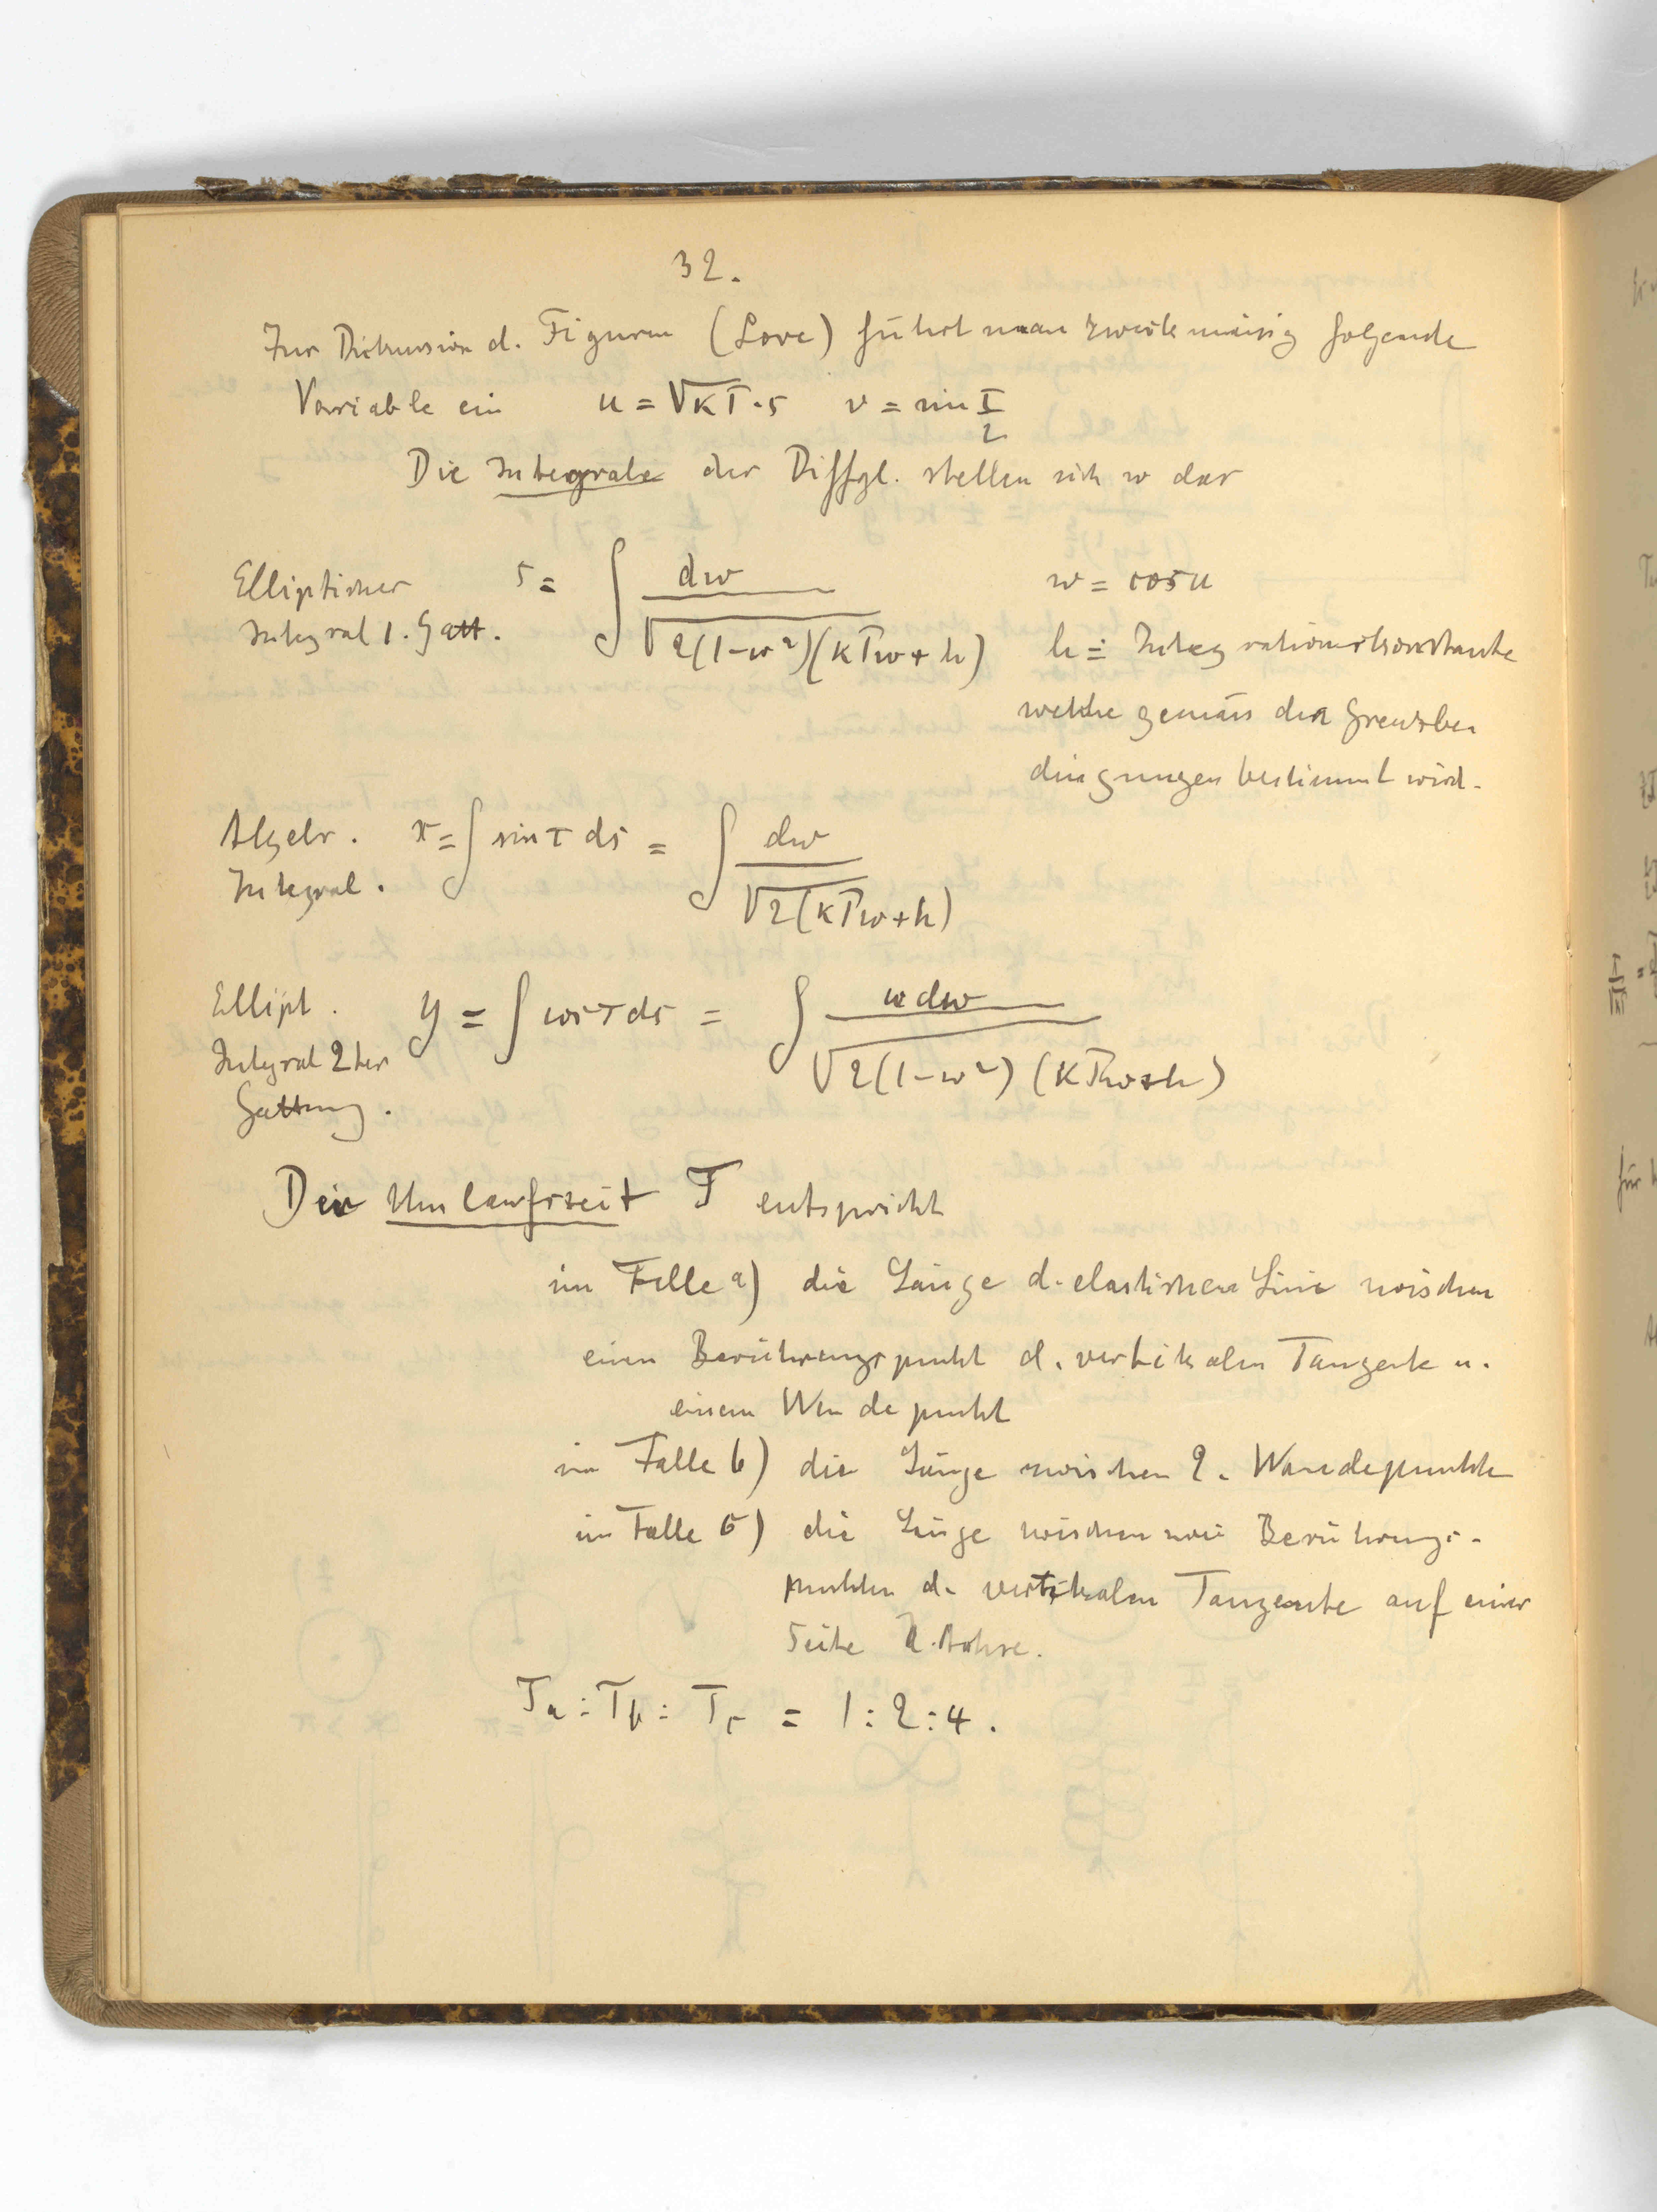 32.
Zur Diskussion d. Figuren (Love) führt man zweckmässig folgende
Variable ein u = √KT·s v = sin τ/2
Die Integrale der Diffgl. stellen sich so dar
Elliptisches Integral 1. Gatt. s = ∫ dw / √2(1-w²)(KTw+h) w = cos u
h = Integrationskonstante
welche gemäss den Grenzbe
dingungen bestimmt wird.
Algebr. Integral. x = ∫ sin τ ds = ∫ dw / √2(KTw+h)
Ellipt. Integral 2ter Gattung. y = ∫ cos τ ds = ∫ w dw / √2(1-w²)(KTw+h)
Der Umlaufszeit T entspricht
im Falle a) die Länge d. elastischen Linie zwischen
einem Berührungspunkt d. vertikalen Tangente u.
einem Wendepunkt
im Falle b) die Länge zwischen 2. Wendepunkten
im Falle c) die Länge zwischen zwei Berührungs-
punkten d. vertikalen Tangente auf einer
Seite d. Achse.
Ta : Tb : Tc = 1:2:4.